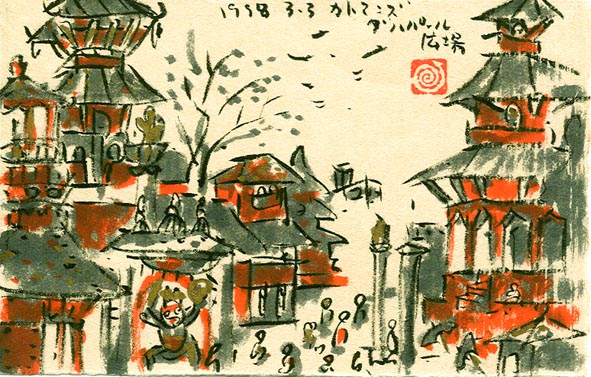 1998 3.3 カトマンズ
ダルバール
広場